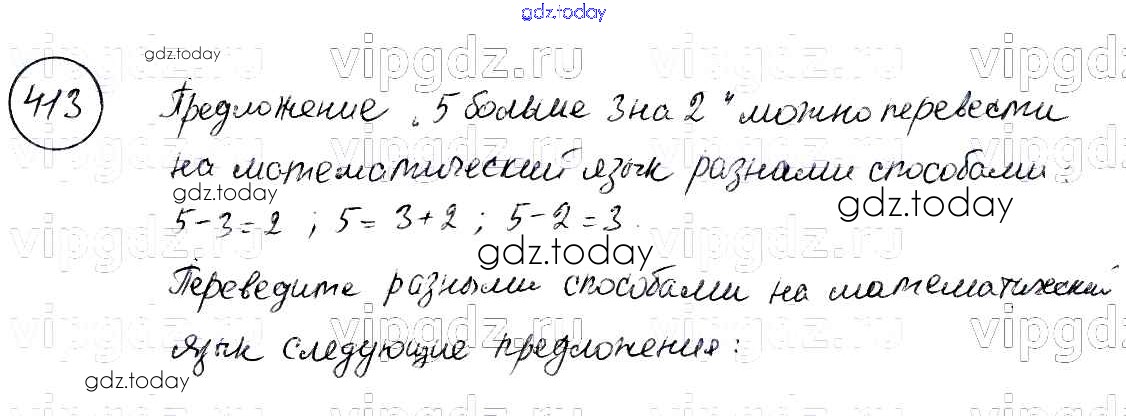 gdz.today
vipgdz.ru vipgdz.ru vipgdz.ru vipgdz.ru
gdz.today
413
Предложение „5 больше 3 на 2" можно перевести
на математический язык разнами способами.
gdz.today
5-3=2 ; 5=3+2 ; 5-2=3.
vipgdz.ru vipgdz.ru vipgdz.ru vipgdz.ru
gdz.today
Переведите разными способами на математический
vipgdz.ru vipgdz.ru vipgdz.ru vipgdz.ru
язык следующие предложения:
gdz.today
vipgdz.ru vipgdz.ru vipgdz.ru vipgdz.ru